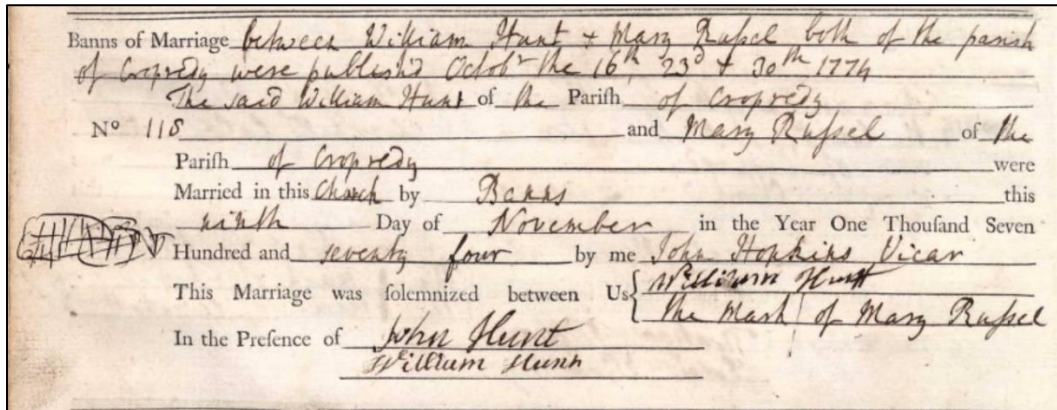 Banns of Marriage between William Hunt + Mary Ruſsel both of the parish
of Cropredy were publish'd Octobr the 16th, 23d + 30th 1774
The said William Hunt of the Pariſh of Cropredy
No 118 and Mary Ruſsel of the
Pariſh of Cropredy were
Married in this Church by Banns this
ninth Day of November in the Year One Thouſand Seven
Hundred and seventy four by me John Hopkins Vicar
This Marriage was ſolemnized between Us { William Hunt
the Mark / of Mary Ruſsel
In the Preſence of John Hunt
William Hunt